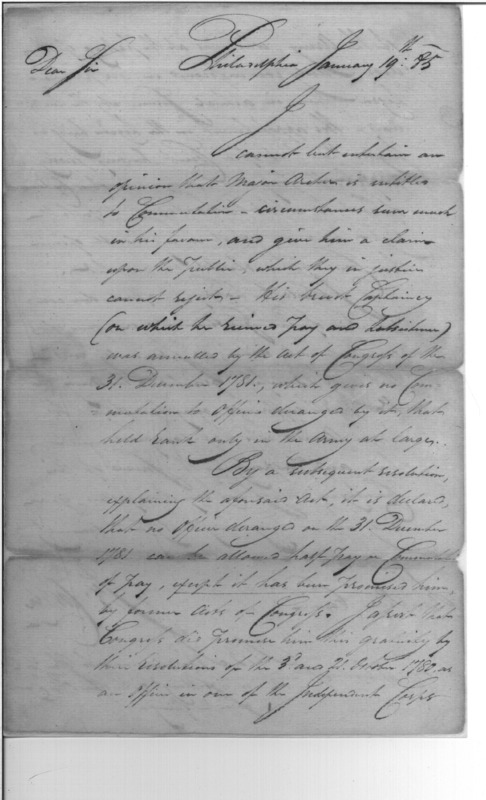 Philadelphia January 19th 85
Dear Sir
I
cannot but entertain an
opinion that Major Archer is entitled
to Commutation – circumstances seem much
in his favour, and give him a claim
upon the Public, which they in justice
cannot reject – His brevet Captaincy
(on which he received Pay and Subsistence)
was annulled by the Act of Congress of the
31. December 1781., which gives no Com-
mutation to Officers deranged by it, that
held Rank only in the Army at large.
By a subsequent resolution,
explaining the aforesaid Act, it is declared,
that no Officer deranged on the 31. December
1781 can be allowed half Pay or
of Pay, except it has been promised him,
by former Acts of Congress. I assert that
Congress did promise him this gratuity by
their resolutions of the 3d and 21. October 1780. as
an Officer in one of the Independent Corps